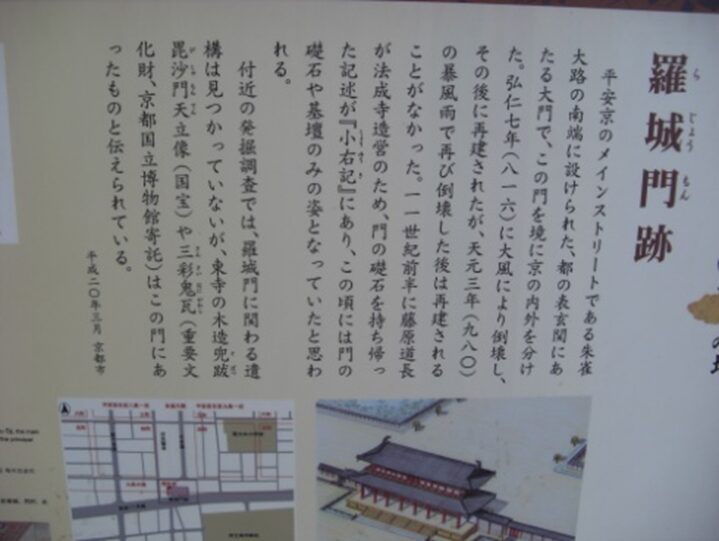 羅城門跡
平安京のメインストリートである朱雀
大路の南端に設けられた、都の表玄関にあ
たる大門で、この門を境に京の内外を分け
た。弘仁七年（八一六）に大風により倒壊し、
その後に再建されたが、天元三年（九八〇）
の暴風雨で再び倒壊した後は再建される
ことがなかった。一一世紀前半に藤原道長
が法成寺造営のため、門の礎石を持ち帰っ
た記述が『小右記』にあり、この頃には門の
礎石や基壇のみの姿となっていたと思わ
れる。
付近の発掘調査では、羅城門に関わる遺
構は見つかっていないが、東寺の木造兜跋
毘沙門天立像（国宝）や三彩鬼瓦（重要文
化財、京都国立博物館寄託）はこの門にあ
ったものと伝えられている。
平成二〇年三月 京都市